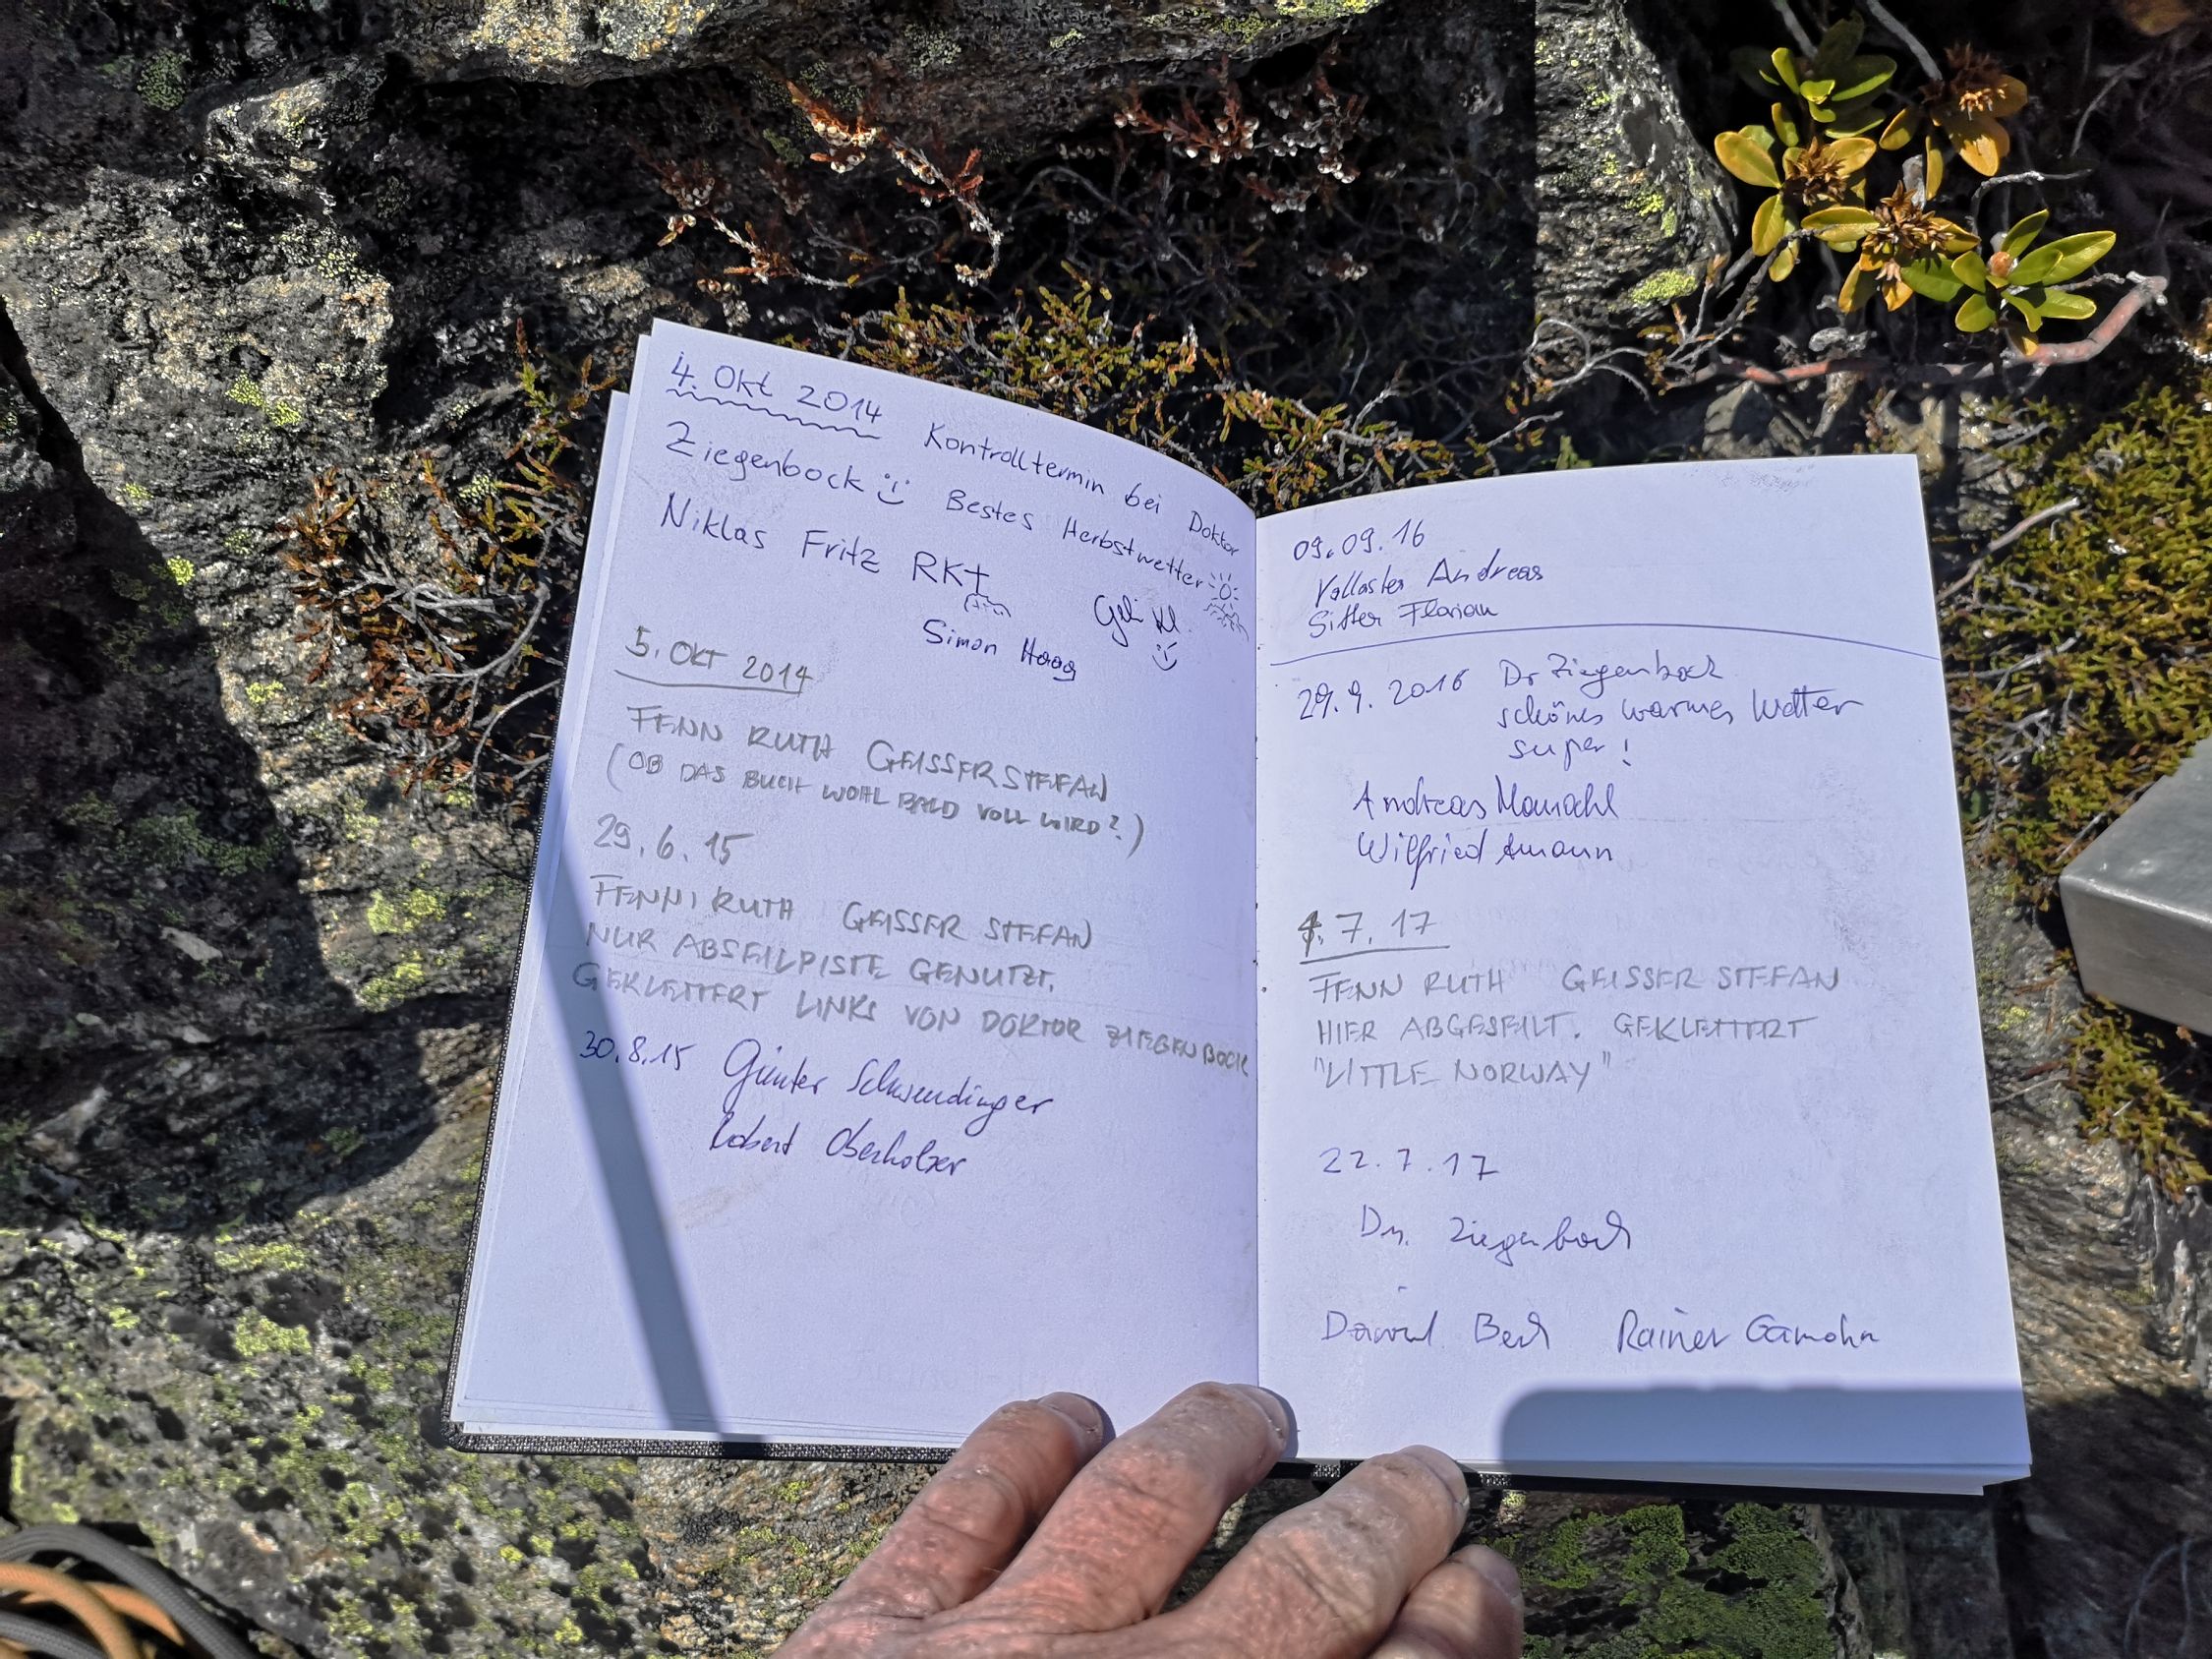 4. Okt 2014 Kontrolltermin bei Doktor
Ziegenbock Bestes Herbstwetter
Niklas Fritz RK
Simon Haag
5. OKT 2014
FENN RUTH GEISSER STEFAN
(OB DAS BUCH WOHL BALD VOLL WIRD?)
29.6.15
FENN RUTH GEISSER STEFAN
NUR ABSEILPISTE GENUTZT.
GEKLETTERT LINKS VON DOKTOR ZIEGENBOCK
30.8.15 Günter Schwendinger
Robert Oberholzer
09.09.16
Vallaster Andreas
Sitter Florian
29.9.2016 Dr Ziegenbock
schönes warmes Wetter
super!
Andreas
Wilfried Amann
7.17
FENN RUTH GEISSER STEFAN
HIER ABGESEILT. GEKLETTERT
"LITTLE NORWAY"
22.7.17
Dr. Ziegenbock
Daniel Beck Rainer Gamohn